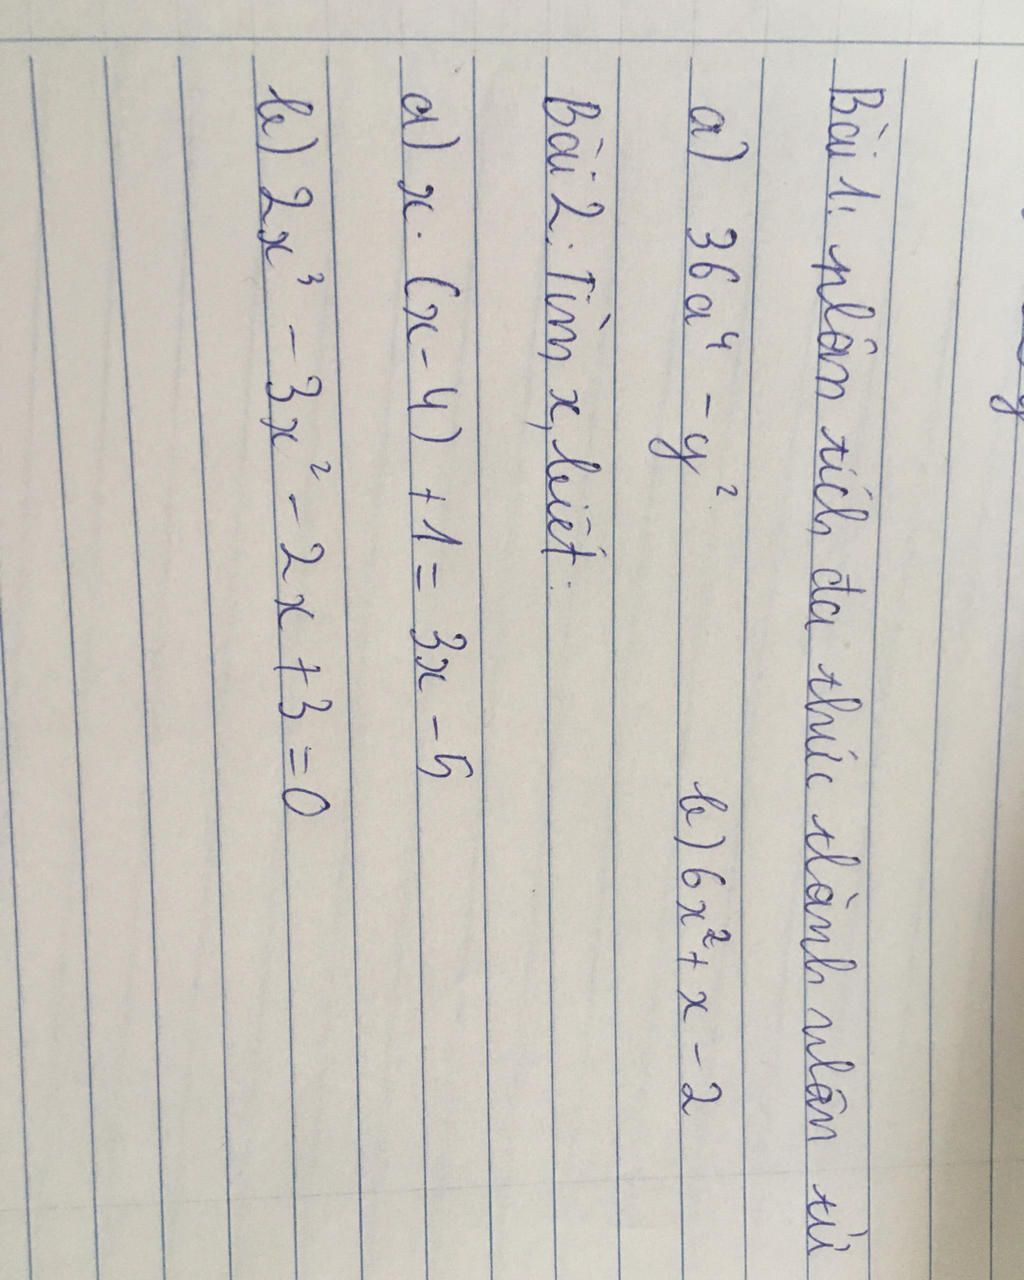 Bài 1: phân tích đa thức thành nhân tử
a) 36a⁴ - y² b) 6x² + x - 2
Bài 2: Tìm x, biết:
a) x. (x - 4) + 1 = 3x - 5
b) 2x³ - 3x² - 2x + 3 = 0